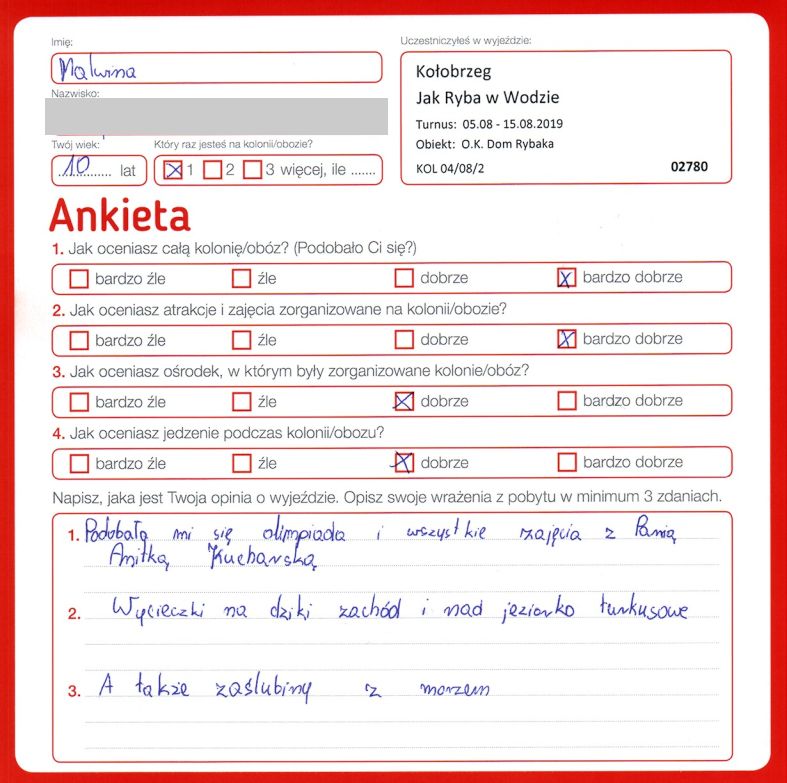 Imię:
Malwina
Nazwisko:
Twój wiek:
10 lat
Który raz jesteś na kolonii/obozie?
1 2 3 więcej, ile .......
Uczestniczyłeś w wyjeździe:
Kołobrzeg
Jak Ryba w Wodzie
Turnus: 05.08 - 15.08.2019
Obiekt: O.K. Dom Rybaka
KOL 04/08/2 02780
Ankieta
1. Jak oceniasz całą kolonię/obóz? (Podobało Ci się?)
bardzo źle źle dobrze bardzo dobrze
2. Jak oceniasz atrakcje i zajęcia zorganizowane na kolonii/obozie?
bardzo źle źle dobrze bardzo dobrze
3. Jak oceniasz ośrodek, w którym były zorganizowane kolonie/obóz?
bardzo źle źle dobrze bardzo dobrze
4. Jak oceniasz jedzenie podczas kolonii/obozu?
bardzo źle źle dobrze bardzo dobrze
Napisz, jaka jest Twoja opinia o wyjeździe. Opisz swoje wrażenia z pobytu w minimum 3 zdaniach.
1. Podobała mi się olimpiada i wszystkie zajęcia z Panią
Anitką Kucharską
2. Wycieczki na dziki zachód i nad jeziorko turkusowe
3. A także zaślubiny z morzem